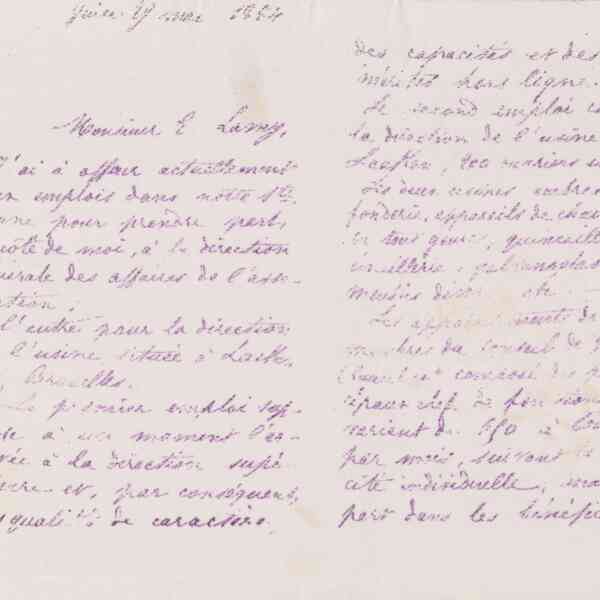 mai 1884
Monsieur E Lamy,
J'ai à affair actuellement
emplois dans notre Sté
une pour prendre part,
côté de moi, à la direction
nérale des affaires de l'asso-
ciation;
l'autre pour la direction
l'usine située à Laeken,
Bruxelles.
Le premier emploi sup-
se à un moment l'é-
vée à la direction supé-
eure et, par conséquent,
qualités de caractère,
des capacités et des
mérites hors ligne.
Le second emploi
la direction de l'usine
Laeken, 200 ouvriers
Les deux usines
fonderie, appareils de chau
en tous genres, quincaille
meubles divers etc.
Les appointements de
membres du conseil de
composé des
cipaux chefs de fon
varient de à
par mois, suivant
cité individuelle,
part dans les bénéfi